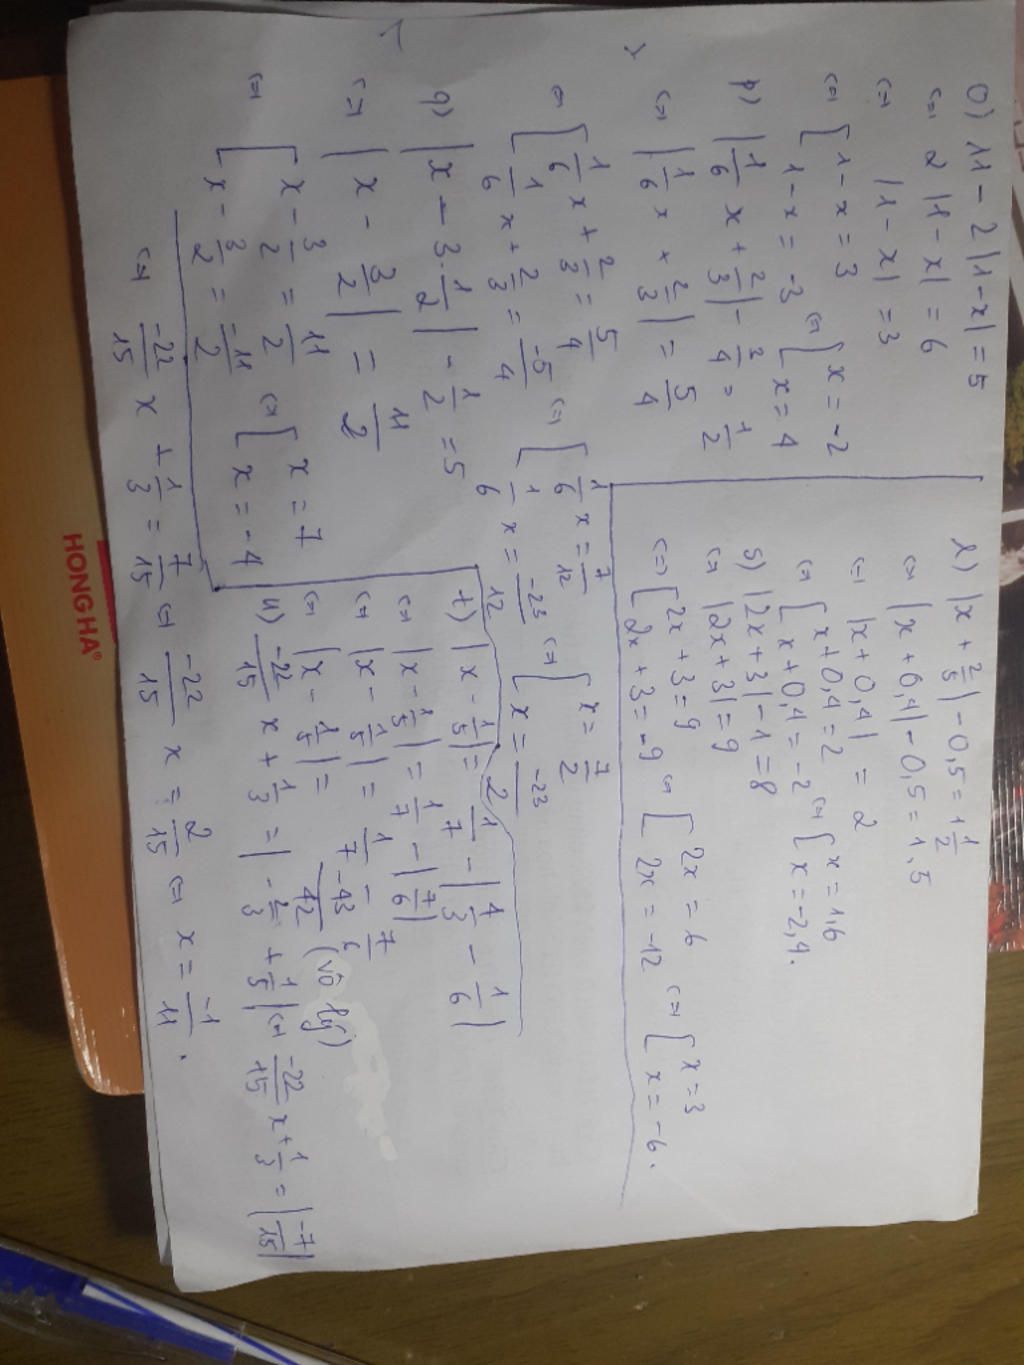 o) 11 - 2|1-x| = 5
<=> 2|1-x| = 6
<=> |1-x| = 3
<=> [ 1-x = 3
1-x = -3 <=> [ x = -2
x = 4
p) |1/6 x + 2/3| - 3/4 = 1/2
<=> |1/6 x + 2/3| = 5/4
<=> [ 1/6 x + 2/3 = 5/4
1/6 x + 2/3 = -5/4 <=> [ 1/6 x = 7/12
1/6 x = -23/12 <=> [ x = 7/2
x = -23/2
q) |x - 3.1/2| - 1/2 = 5
<=> |x - 3/2| = 11/2
<=> [ x - 3/2 = 11/2
x - 3/2 = -11/2 <=> [ x = 7
x = -4
r) |x + 2/5| - 0,5 = 1 1/2
<=> |x + 0,4| - 0,5 = 1,5
<=> |x + 0,4| = 2
<=> [ x + 0,4 = 2
x + 0,4 = -2 <=> [ x = 1,6
x = -2,4.
s) |2x+3| - 1 = 8
<=> |2x+3| = 9
<=> [ 2x+3 = 9
2x+3 = -9 <=> [ 2x = 6
2x = -12 <=> [ x = 3
x = -6.
t) |x - 1/5| = 1/7 - |4/3 - 1/6|
<=> |x - 1/5| = 1/7 - |7/6|
<=> |x - 1/5| = 1/7 - 7/6
<=> |x - 1/5| = -43/42 (vô lý)
u) -22/15 x + 1/3 = |-2/3 + 1/5| <=> -22/15 x + 1/3 = |-7/15|
<=> -22/15 x + 1/3 = 7/15 <=> -22/15 x = 2/15 <=> x = -1/11.
HONG HA®